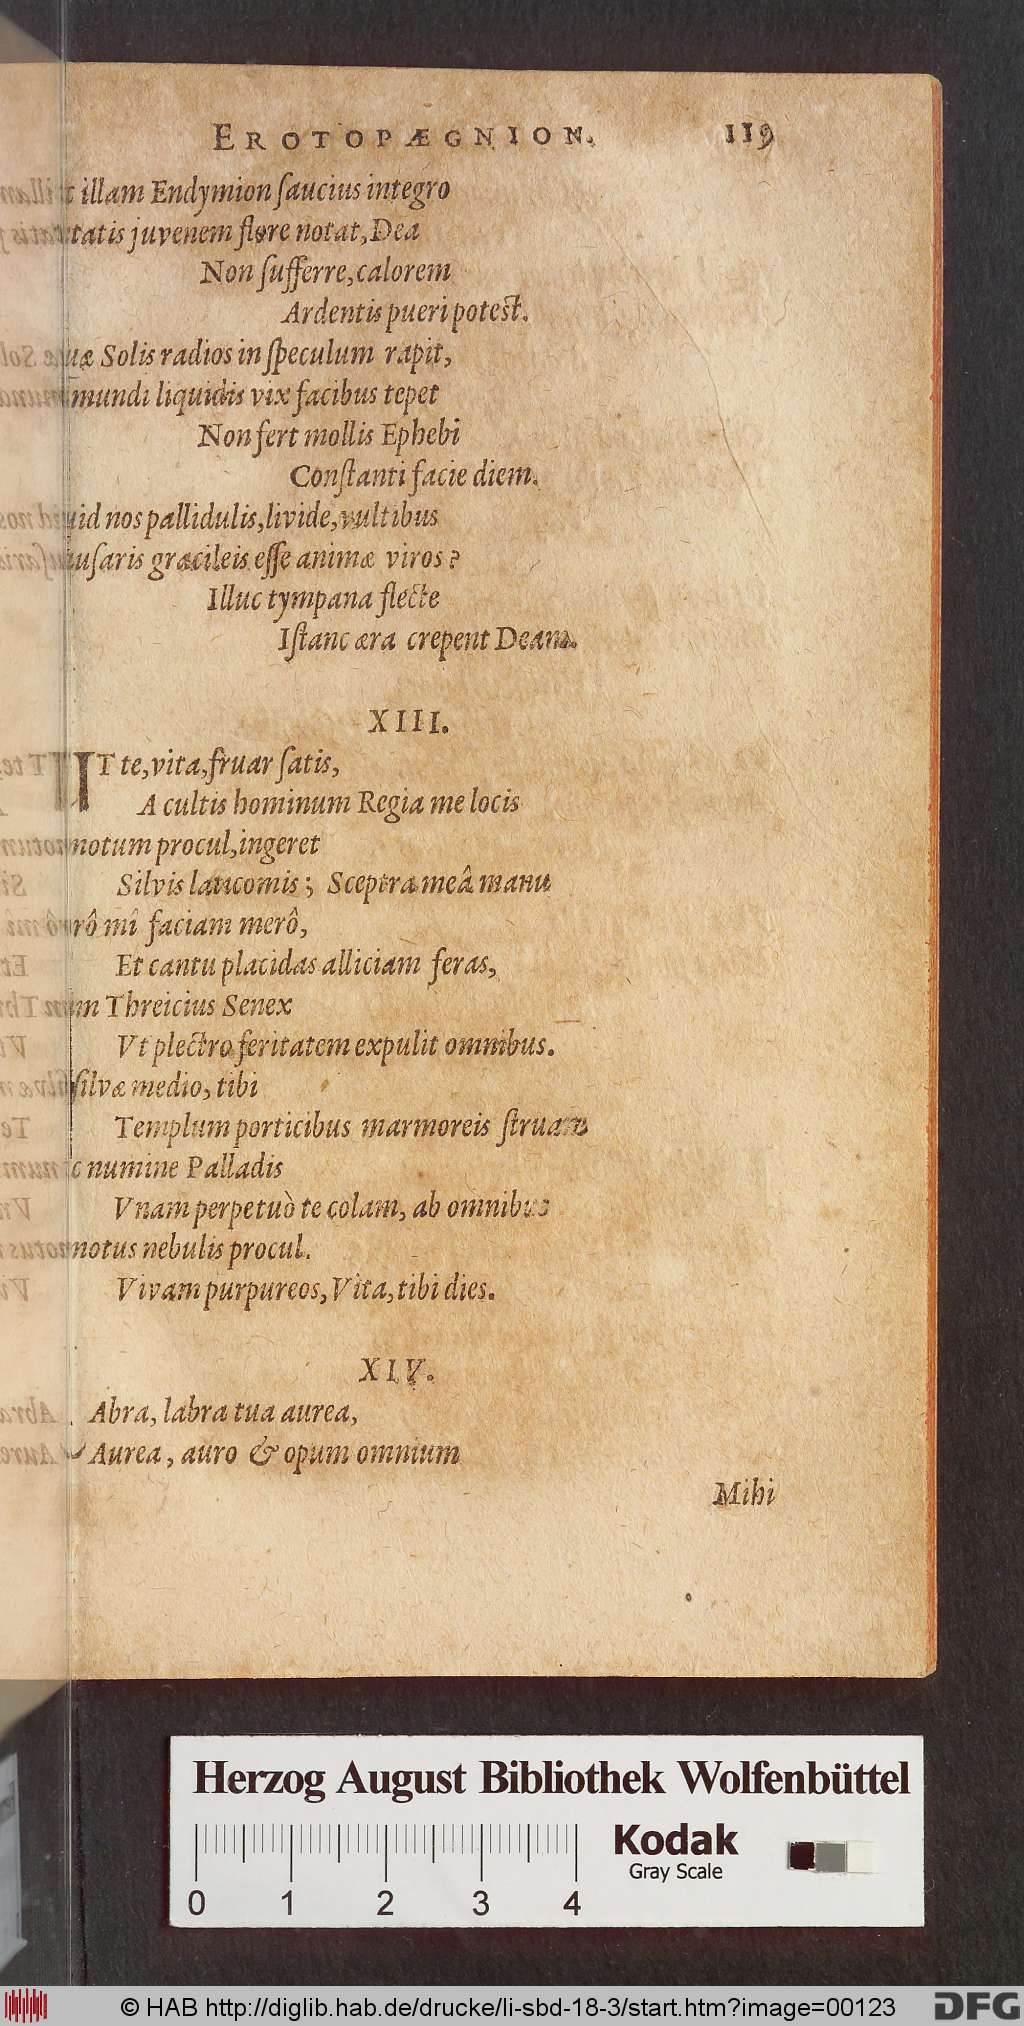 EROTOPÆGNION. 119
illam Endymion ſaucius integro
tatis juvenem flore notat, Dea
Non ſufferre, calorem
Ardentis pueri poteſt.
Solis radios in ſpeculum rapit,
mundi liquidis vix facibus tepet
Non fert mollis Ephebi
Conſtanti facie diem.
nos pallidulis, livide, vultibus
gracileis eſſe animæ viros?
Illuc tympana flecte
Iſtanc æra crepent Deam.
XIII.
UT te, vita, fruar ſatis,
A cultis hominum Regia me locis
motum procul, ingeret
Silvis lauicomis; Sceptra meâ manu
mî faciam merô,
Et cantu placidas alliciam feras,
Threicius Senex
Vt plectro feritatem expulit omnibus.
ſilvæ medio, tibi
Templum porticibus marmoreis ſtruam
numine Palladis
Vnam perpetuò te colam, ab omnibus
motus nebulis procul.
Vivam purpureos, Vita, tibi dies.
XIV.
Abra, labra tua aurea,
Aurea, auro & opum omnium
Mihi
Herzog August Bibliothek Wolfenbüttel
Kodak
Gray Scale
0 1 2 3 4
© HAB http://diglib.hab.de/drucke/li-sbd-18-3/start.htm?image=00123
DFG